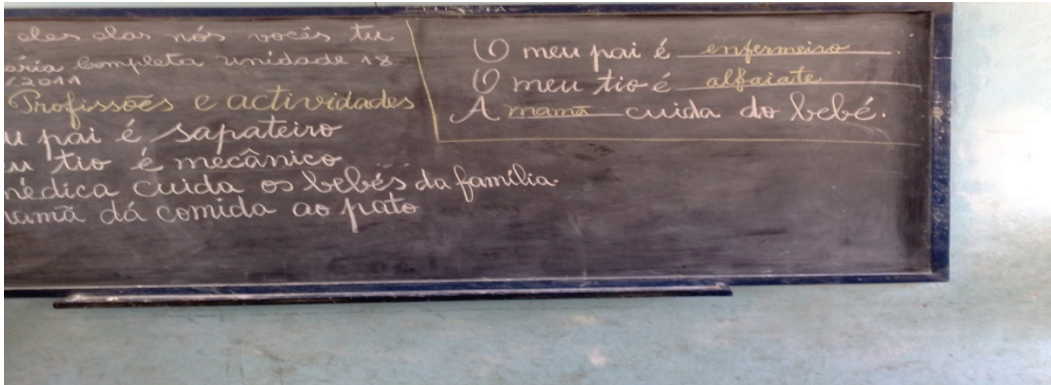 eles elas nós vocês tu
ária Completa unidade 18
/2011
Profissões e actividades
u pai é sapateiro
u tio é mecânico
médica cuida os bebés da família.
mamã dá comida ao pato
O meu pai é enfermeiro.
O meu tio é alfaiate
A mamã cuida do bebé.